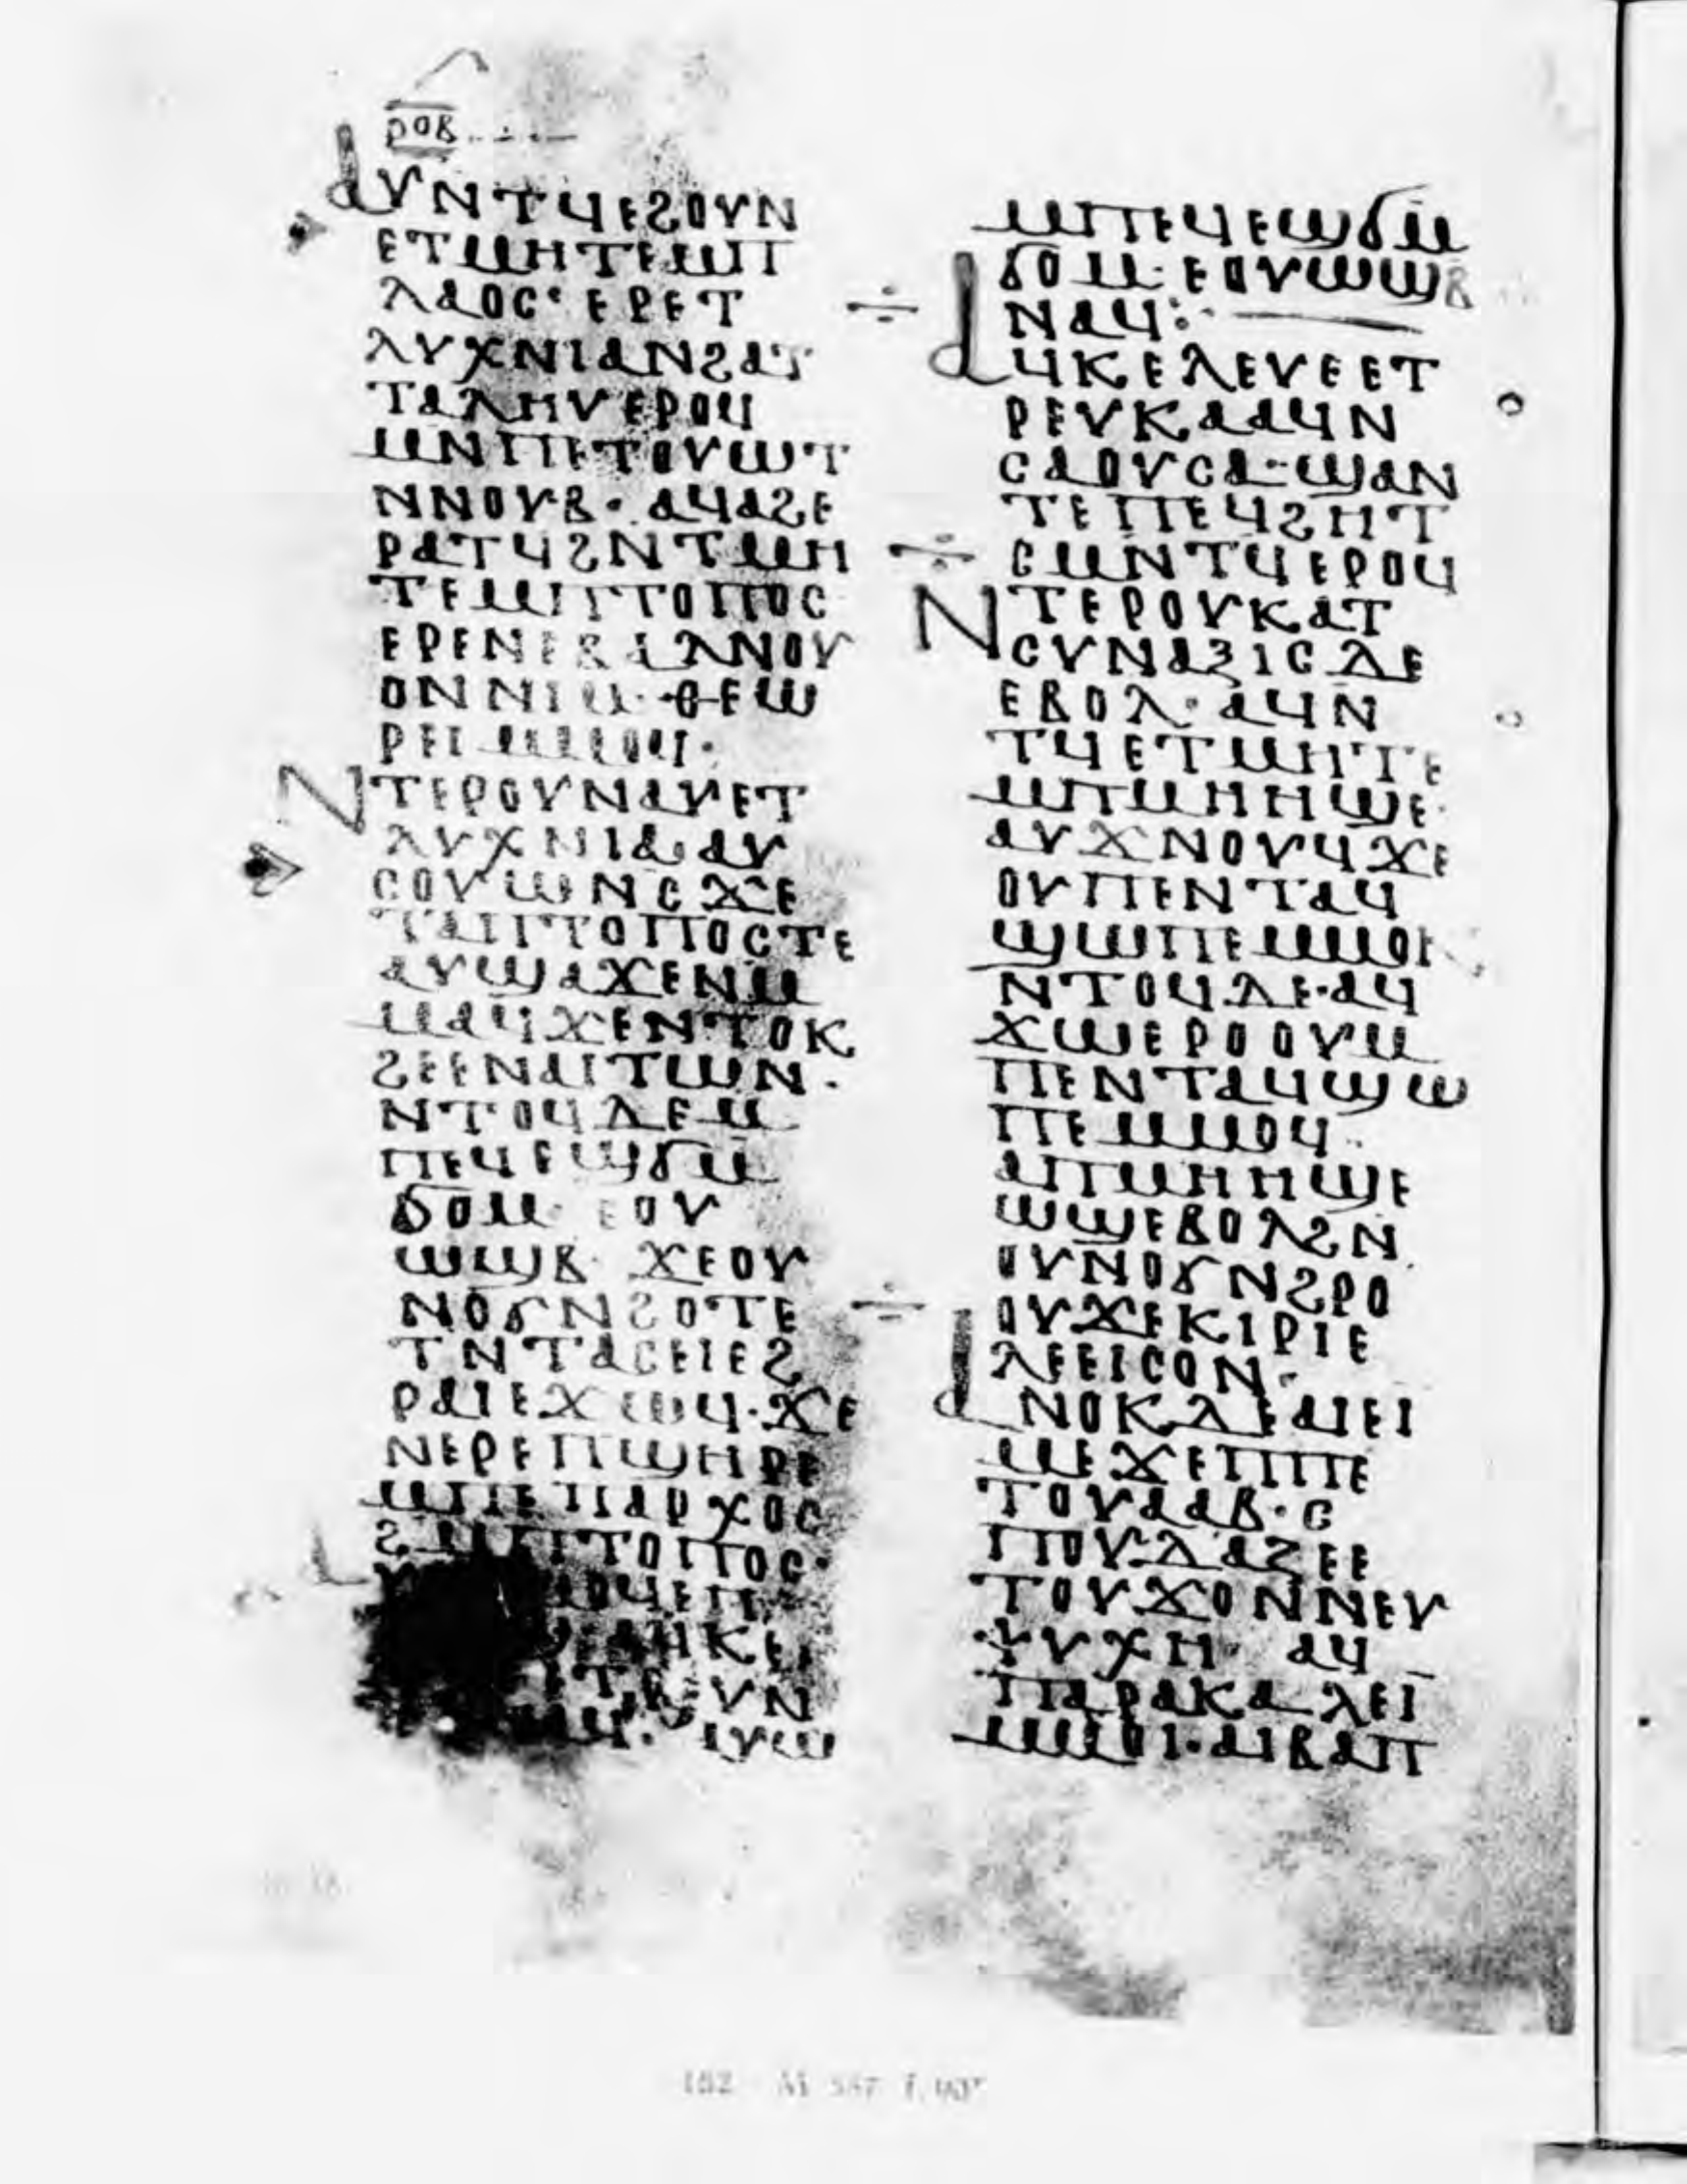 ⲣⲟⲃ
ⲁⲩⲛⲧϥⲉϩⲟⲩⲛ
ⲉⲧⲙⲏⲧⲉⲙⲡ
ⲗⲁⲟⲥ· ⲉⲣⲉⲧ
ⲗⲩⲭⲛⲓⲁⲛϩⲁⲧ
ⲧⲁⲗⲏⲩⲉⲣⲟϥ
ⲙⲛⲡⲉⲧⲟⲩⲱⲧ
ⲛⲛⲟⲩⲃ· ⲁϥⲁϩⲉ
ⲣⲁⲧϥϩⲛⲧⲙⲏ
ⲧⲉⲙⲡⲧⲟⲡⲟⲥ
ⲉⲣⲉⲛⲉⲃⲁⲗⲛⲟⲩ
ⲟⲛⲛⲓⲙ· ⲑⲉⲱ
ⲣⲉⲓⲙⲙⲟϥ·
ⲛⲧⲉⲣⲟⲩⲛⲁⲩⲉⲧ
ⲗⲩⲭⲛⲓⲁ ⲁⲩ
ⲥⲟⲩⲱⲛⲥϫⲉ
ⲧⲁⲡⲧⲟⲡⲟⲥⲧⲉ
ⲁⲩϣⲁϫⲉⲛⲙ
ⲙⲁϥϫⲉⲛⲧⲟⲕ
ϩⲉⲉⲛⲁⲓⲧⲱⲛ·
ⲛⲧⲟϥⲇⲉⲙ
ⲡⲉϥⲉϣϭⲙ
ϭⲟⲙ· ⲉⲟⲩ
ⲱϣⲃ ϫⲉⲟⲩ
ⲛⲟϭⲛϩⲟⲧⲉ
ⲧⲛⲧⲁⲥⲉⲓⲉϩ
ⲣⲁⲓⲉϫⲱϥ·ϫⲉ
ⲛⲉⲣⲉⲡϣⲏⲣⲉ
ⲙⲡⲉⲡⲁⲣⲭⲟⲥ
ϩⲙⲡⲧⲟⲡⲟⲥ·
ⲙⲡⲉϥⲉϣϭⲙ
ϭⲟⲙ· ⲉⲟⲩⲱϣⲃ
ⲛⲁϥ:
ⲁϥⲕⲉⲗⲉⲩⲉⲉⲧ
ⲣⲉⲩⲕⲁⲁϥⲛ
ⲥⲁⲟⲩⲥⲁ·ϣⲁⲛ
ⲧⲉⲡⲉϥϩⲏⲧ
ⲥⲙⲛⲧϥⲉⲣⲟϥ
ⲛⲧⲉⲣⲟⲩⲕⲁⲧ
ⲥⲩⲛⲁⲝⲓⲥⲇⲉ
ⲉⲃⲟⲗ· ⲁϥⲛ
ⲧϥⲉⲧⲙⲏⲧⲉ
ⲙⲡⲙⲏⲏϣⲉ·
ⲁⲩϫⲛⲟⲩϥϫⲉ
ⲟⲩⲡⲉⲛⲧⲁϥ
ϣⲱⲡⲉⲙⲙⲟⲕ
ⲛⲧⲟϥⲇⲉ·ⲁϥ
ϫⲱⲉⲣⲟⲟⲩⲙ
ⲡⲉⲛⲧⲁϥϣⲱ
ⲡⲉⲙⲙⲟϥ·
ⲁⲡⲙⲏⲏϣⲉ
ⲱϣⲉⲃⲟⲗϩⲛ
ⲟⲩⲛⲟϭⲛϩⲣⲟ
ⲟⲩϫⲉⲕⲓⲣⲓⲉ
ⲗⲉⲉⲓⲥⲟⲛ·
ⲁⲛⲟⲕⲇⲉⲁⲓⲉⲓ
ⲙⲉϫⲉⲡⲡⲉ
ⲧⲟⲩⲁⲁⲃ· ⲥ
ⲡⲟⲩⲇⲁⲍⲉⲉ
ⲧⲟⲩϫⲟⲛⲛⲉⲩ
ⲯⲩⲭⲏ· ⲁϥ
ⲡⲁⲣⲁⲕⲁⲗⲉⲓ
ⲙⲙⲟⲓ·ⲁⲓⲃⲁⲡ